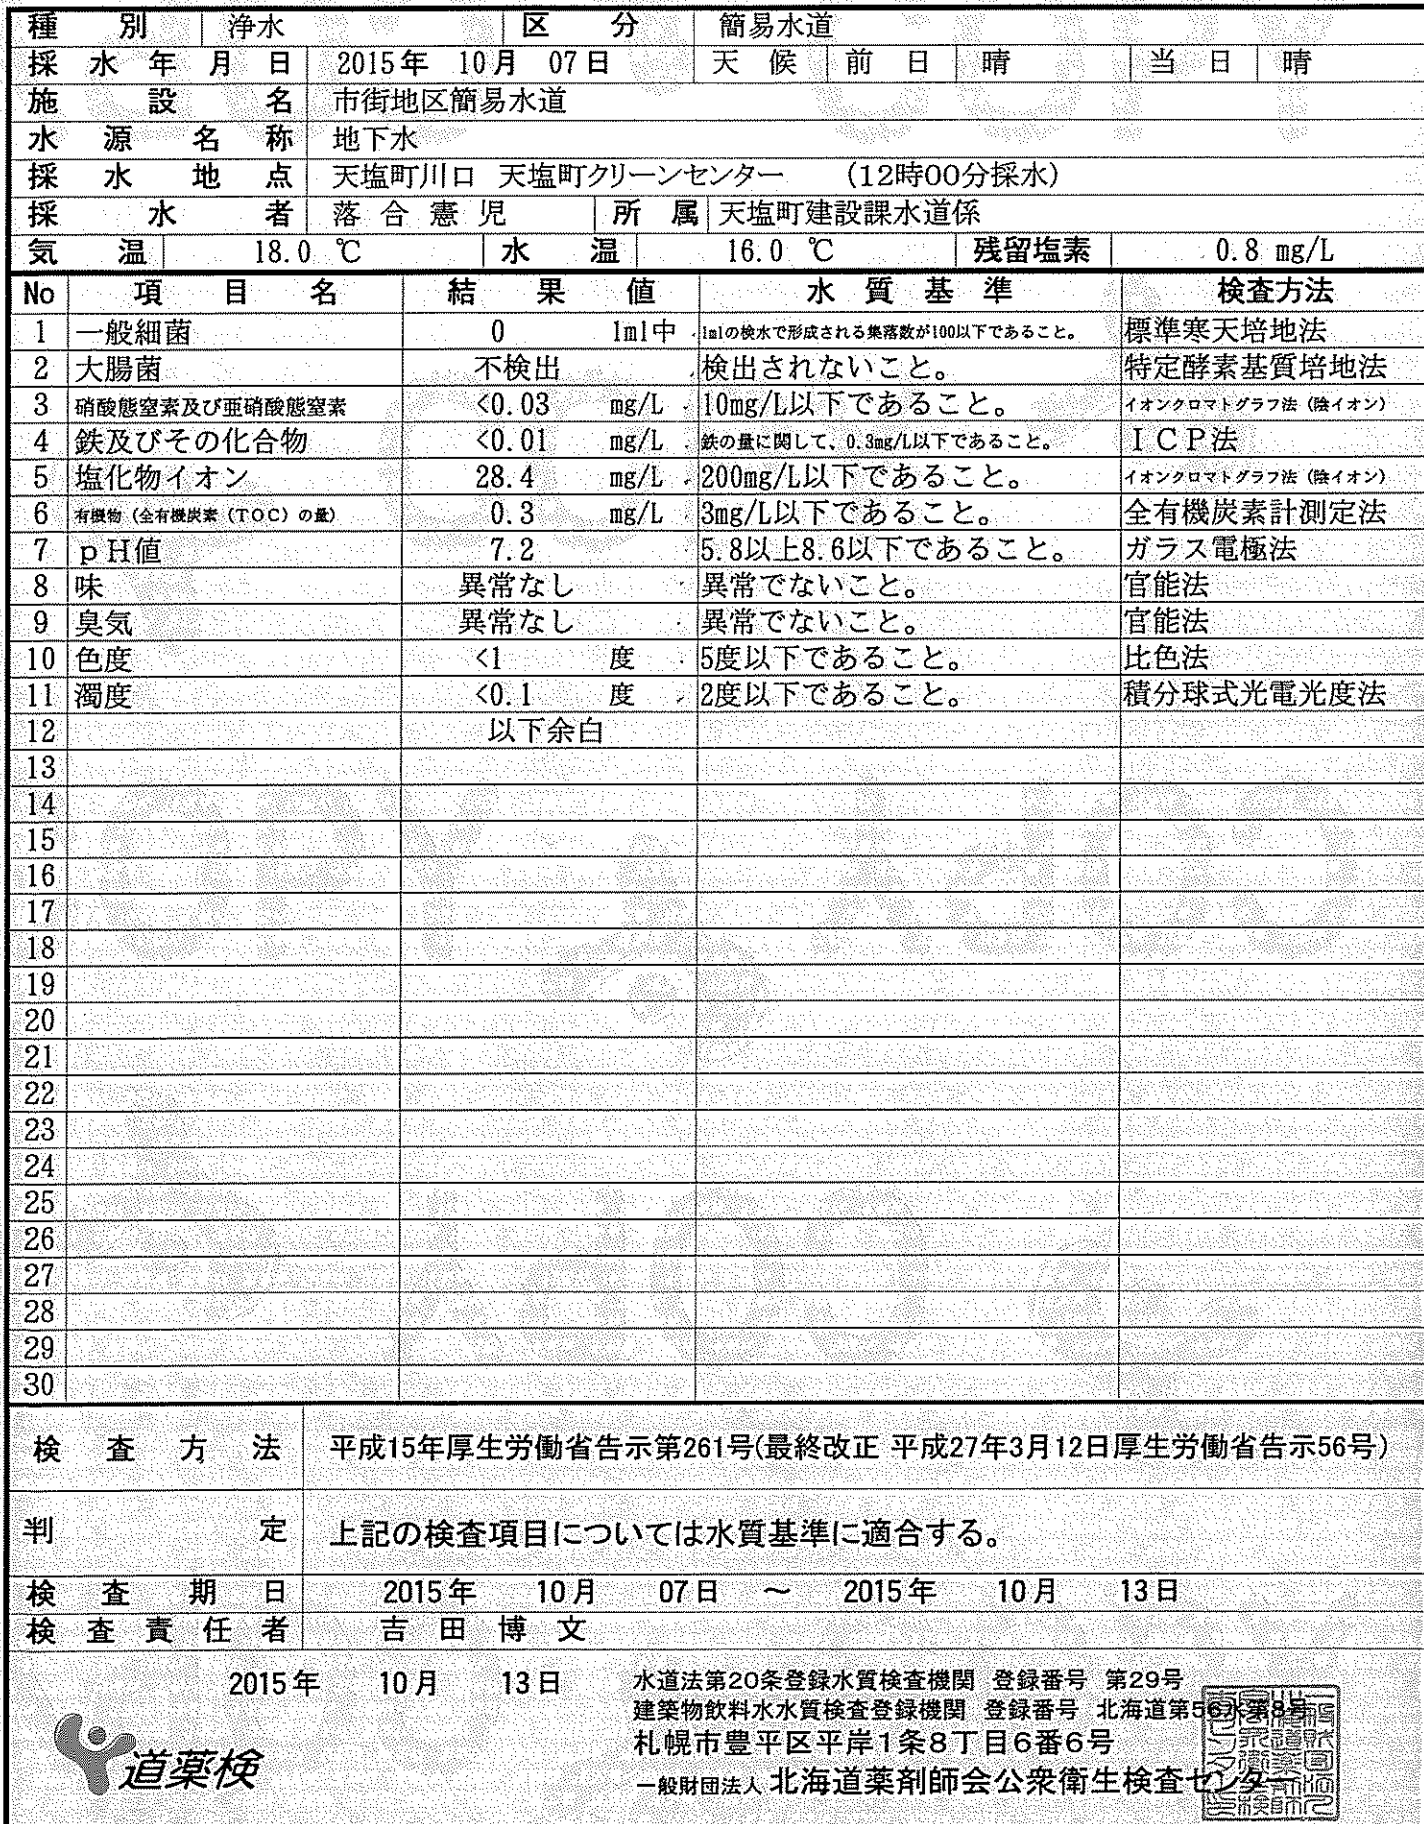 種別 浄水 区分 簡易水道
採水年月日 2015年 10月 07日 天候 前日 晴 当日 晴
施設名 市街地区簡易水道
水源名称 地下水
採水地点 天塩町川口 天塩町クリーンセンター (12時00分採水)
採水者 落合憲児 所属 天塩町建設課水道係
気温 18.0 ℃ 水温 16.0 ℃ 残留塩素 0.8 mg/L
No 項目名 結果値 水質基準 検査方法
1 一般細菌 0 1ml中 1mlの検水で形成される集落数が100以下であること。 標準寒天培地法
2 大腸菌 不検出 検出されないこと。 特定酵素基質培地法
3 硝酸態窒素及び亜硝酸態窒素 <0.03 mg/L 10mg/L以下であること。 イオンクロマトグラフ法(陰イオン)
4 鉄及びその化合物 <0.01 mg/L 鉄の量に関して、0.3mg/L以下であること。 ICP法
5 塩化物イオン 28.4 mg/L 200mg/L以下であること。 イオンクロマトグラフ法(陰イオン)
6 有機物(全有機炭素(TOC)の量) 0.3 mg/L 3mg/L以下であること。 全有機炭素計測定法
7 pH値 7.2 5.8以上8.6以下であること。 ガラス電極法
8 味 異常なし 異常でないこと。 官能法
9 臭気 異常なし 異常でないこと。 官能法
10 色度 <1 度 5度以下であること。 比色法
11 濁度 <0.1 度 2度以下であること。 積分球式光電光度法
12 以下余白
13
14
15
16
17
18
19
20
21
22
23
24
25
26
27
28
29
30
検査方法 平成15年厚生労働省告示第261号(最終改正 平成27年3月12日厚生労働省告示56号)
判定 上記の検査項目については水質基準に適合する。
検査期日 2015年 10月 07日 ～ 2015年 10月 13日
検査責任者 吉田博文
2015年 10月 13日
水道法第20条登録水質検査機関 登録番号 第29号
建築物飲料水水質検査登録機関 登録番号 北海道第56水第8号
札幌市豊平区平岸1条8丁目6番6号
一般財団法人 北海道薬剤師会公衆衛生検査センター
道薬検